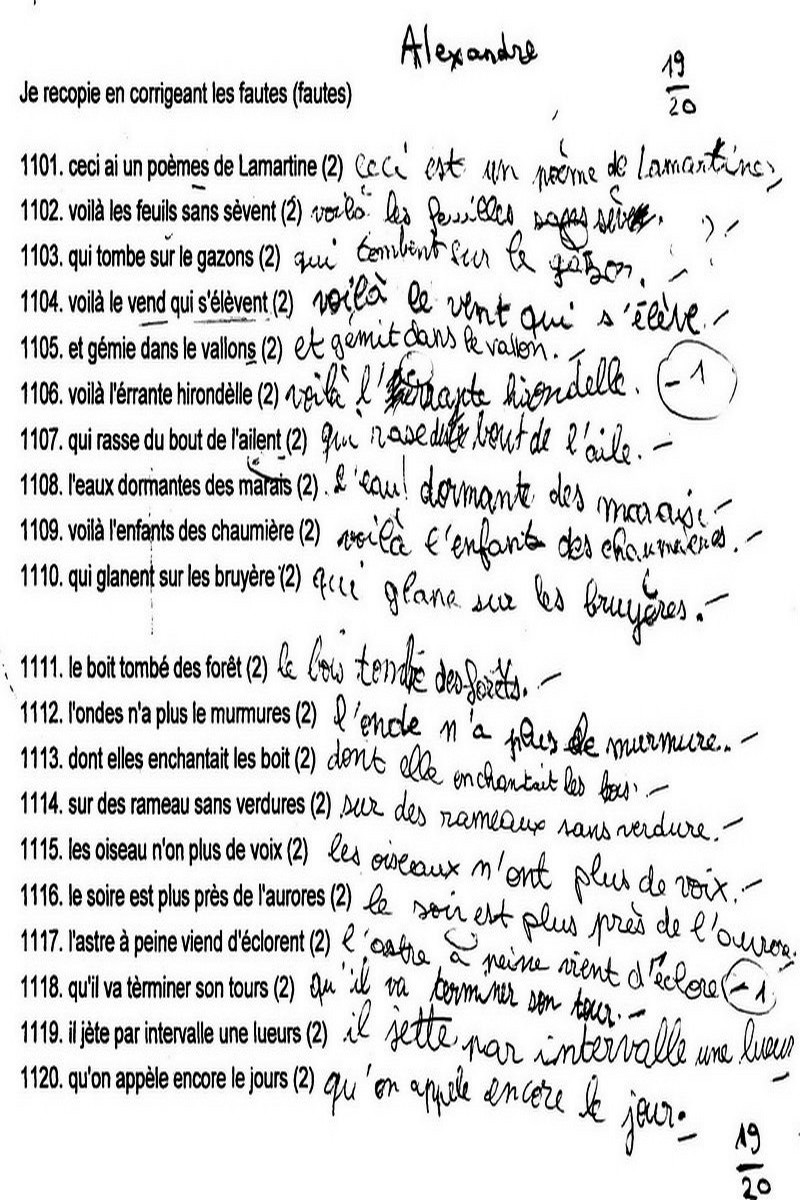 Alexandre
19
20
Je recopie en corrigeant les fautes (fautes)
1101. ceci ai un poèmes de Lamartine (2) Ceci est un poème de Lamartine.
1102. voilà les feuils sans sèvent (2) voilà les feuilles sans sève.
1103. qui tombe sur le gazons (2) qui tombent sur le gazon.
1104. voilà le vend qui s'élèvent (2) voilà le vent qui s'élève.
1105. et gémie dans le vallons (2) et gémit dans le vallon.
1106. voilà l'érrante hirondèlle (2) voilà l'errante hirondelle. -1
1107. qui rasse du bout de l'ailent (2) qui rase du bout de l'aile.
1108. l'eaux dormantes des marais (2) L'eau dormante des marais.
1109. voilà l'enfants des chaumière (2) voilà l'enfant des chaumières.
1110. qui glanent sur les bruyère (2) qui glane sur les bruyères.
1111. le boit tombé des forêt (2) le bois tombé des forêts.
1112. l'ondes n'a plus le murmures (2) l'onde n'a plus le murmure.
1113. dont elles enchantait les boit (2) dont elle enchantait les bois.
1114. sur des rameau sans verdures (2) sur des rameaux sans verdure.
1115. les oiseau n'on plus de voix (2) les oiseaux n'ont plus de voix.
1116. le soire est plus près de l'aurores (2) le soir est plus près de l'aurore.
1117. l'astre à peine viend d'éclorent (2) l'astre à peine vient d'éclore -1
1118. qu'il va tèrminer son tours (2) Qu'il va terminer son tour.
1119. il jète par intervalle une lueurs (2) il jette par intervalle une lueur
1120. qu'on appèle encore le jours (2) qu'on appele encore le jour.
19
20